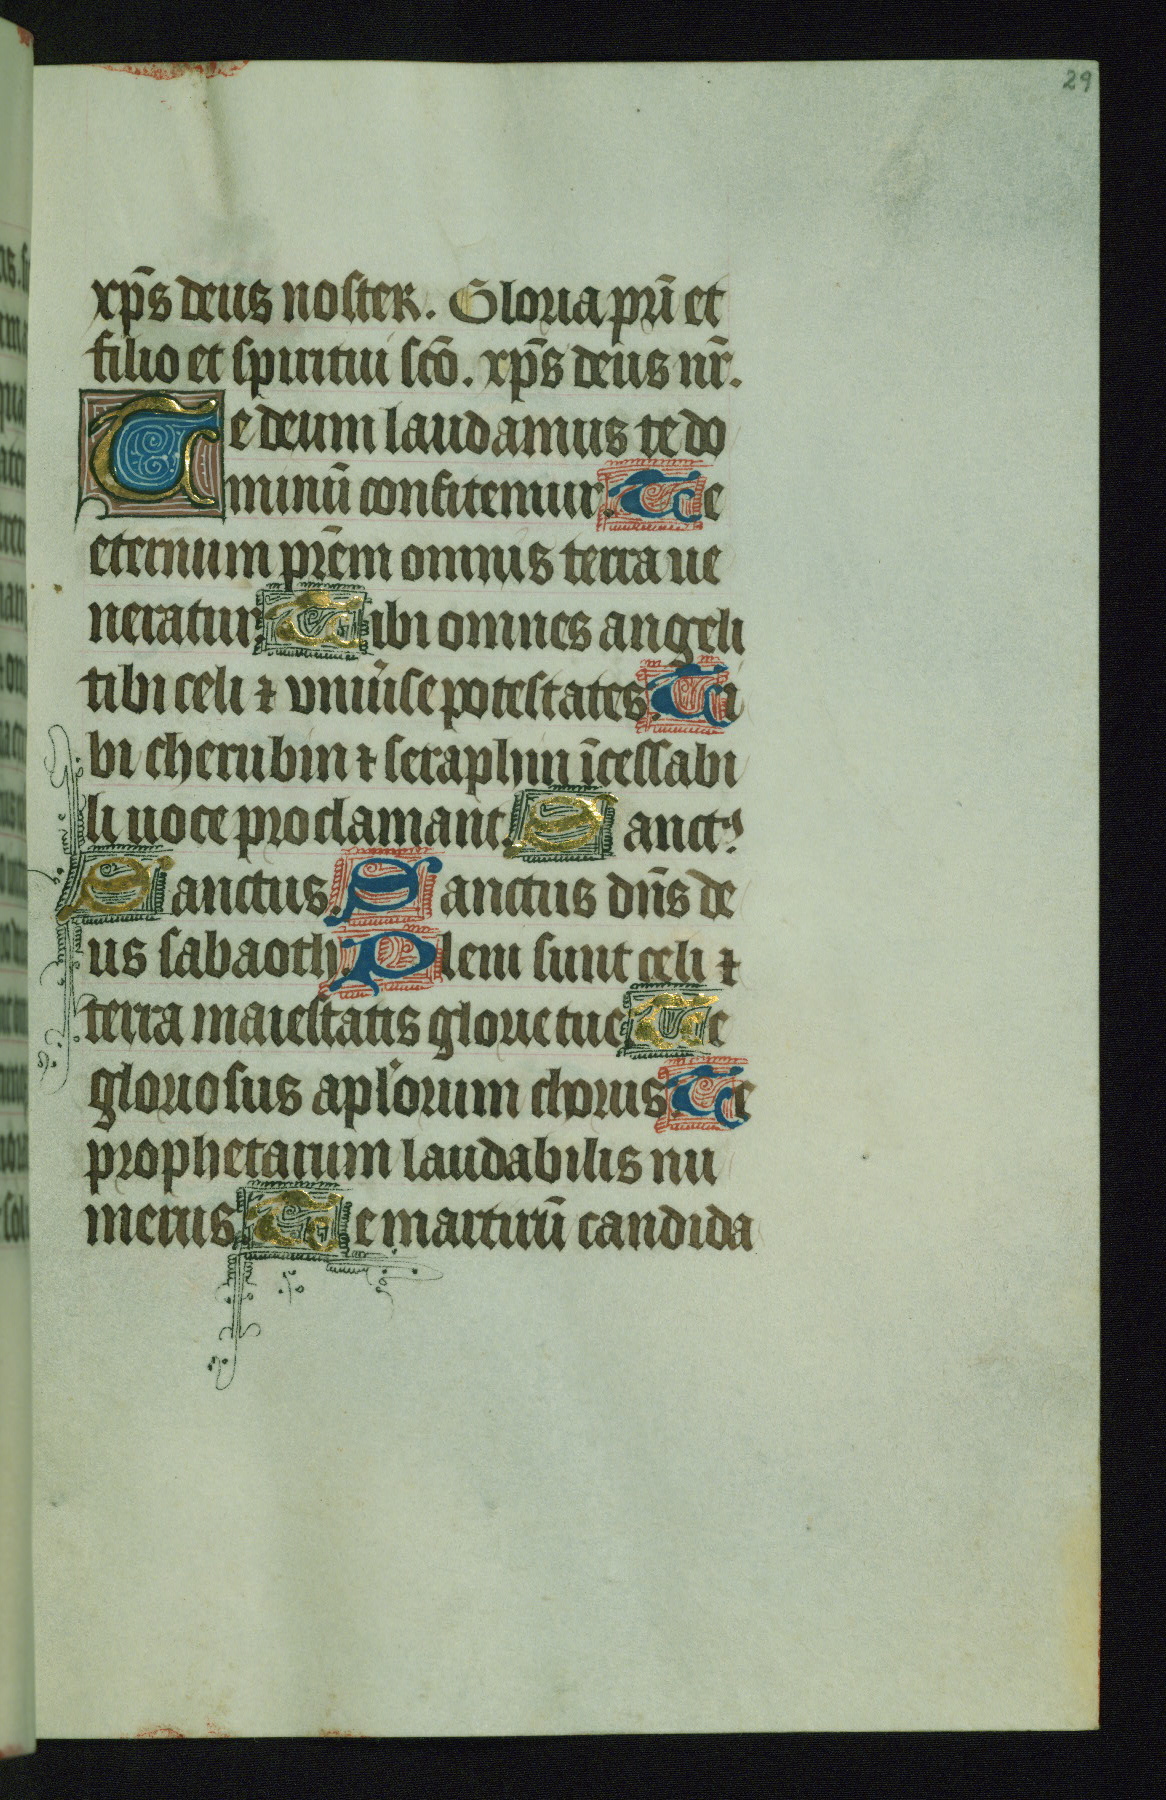 29
xp̄s deus noster. Gloria pr̄i et
filio et spiritui sc̄o. xp̄s deus nr̄.
Te deum laudamus te do
minū confitemur. Te
eternum pr̄em omnis terra ue
neratur. Tibi omnes angeli
tibi celi ⁊ vniu̓se potestates. Ti
bi cherubin ⁊ seraphin īcessabi
li uoce proclamant. Sanctꝰ.
Sanctus. Sanctus dn̄s de
us sabaoth. Pleni sunt celi ⁊
terra maiestatis glorie tue. Te
gloriosus apl̓orum chorus. Te
prophetarum laudabilis nu
merus. Te martirū candida